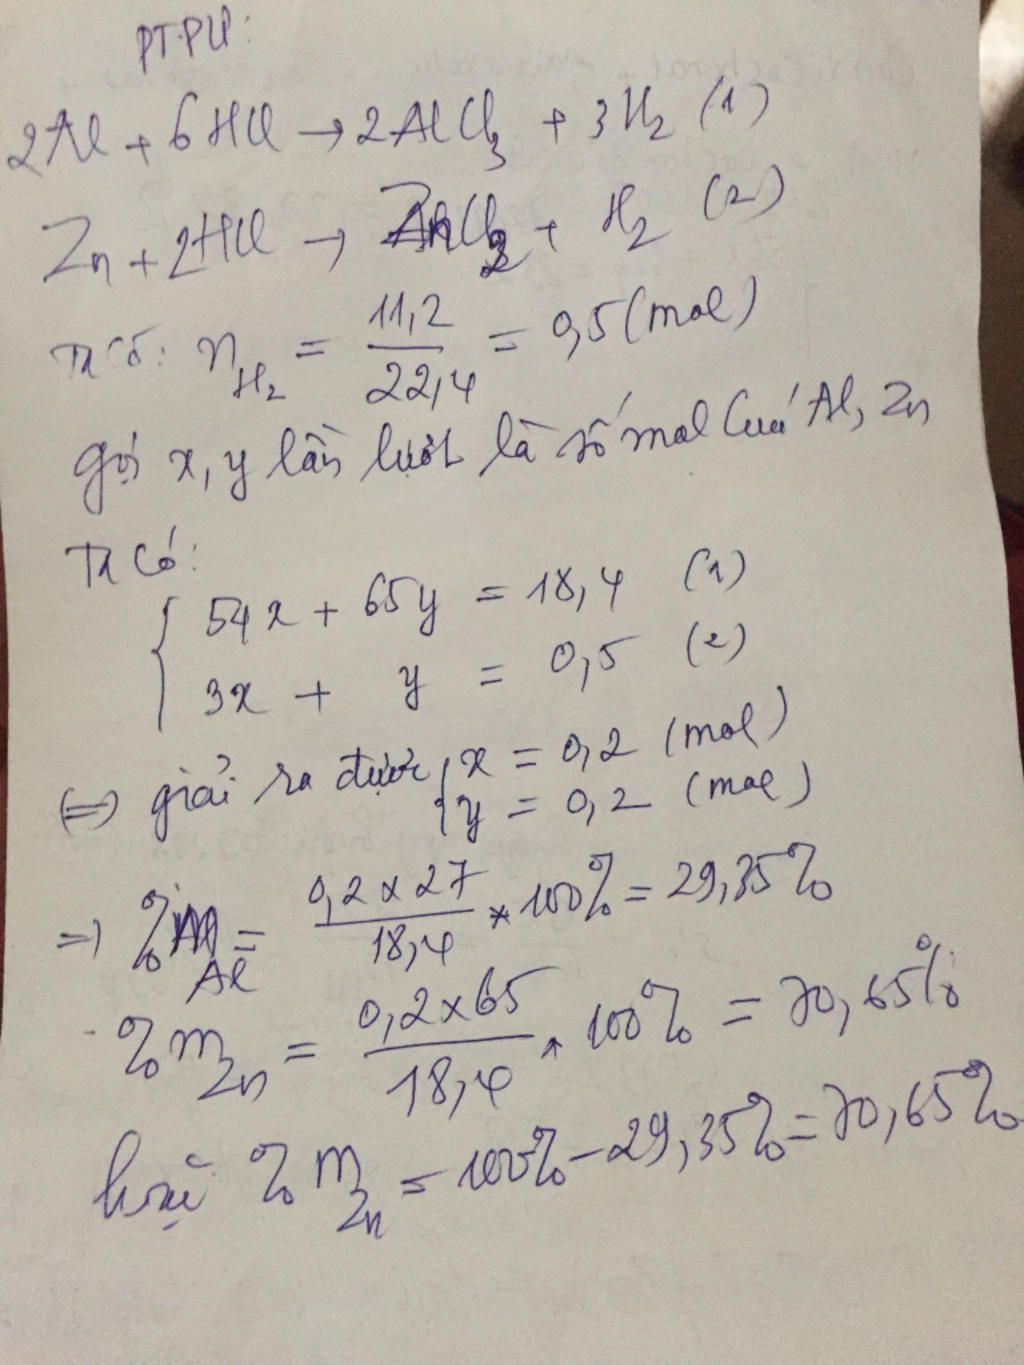 PTPƯ:
2Al + 6HCl → 2AlCl3 + 3H2 (1)
Zn + 2HCl → ZnCl2 + H2 (2)
Ta có: nH2 = 11,2 / 22,4 = 0,5 (mol)
gọi x, y lần lượt là số mol của Al, Zn
Ta có:
54x + 65y = 18,4 (1)
3x + y = 0,5 (2)
(=) giải ra được { x = 0,2 (mol)
y = 0,2 (mol)
=) %mAl = 0,2 x 27 / 18,4 * 100% = 29,35%
%mZn = 0,2 x 65 / 18,4 * 100% = 70,65%
hoặc %mZn = 100% - 29,35% = 70,65%